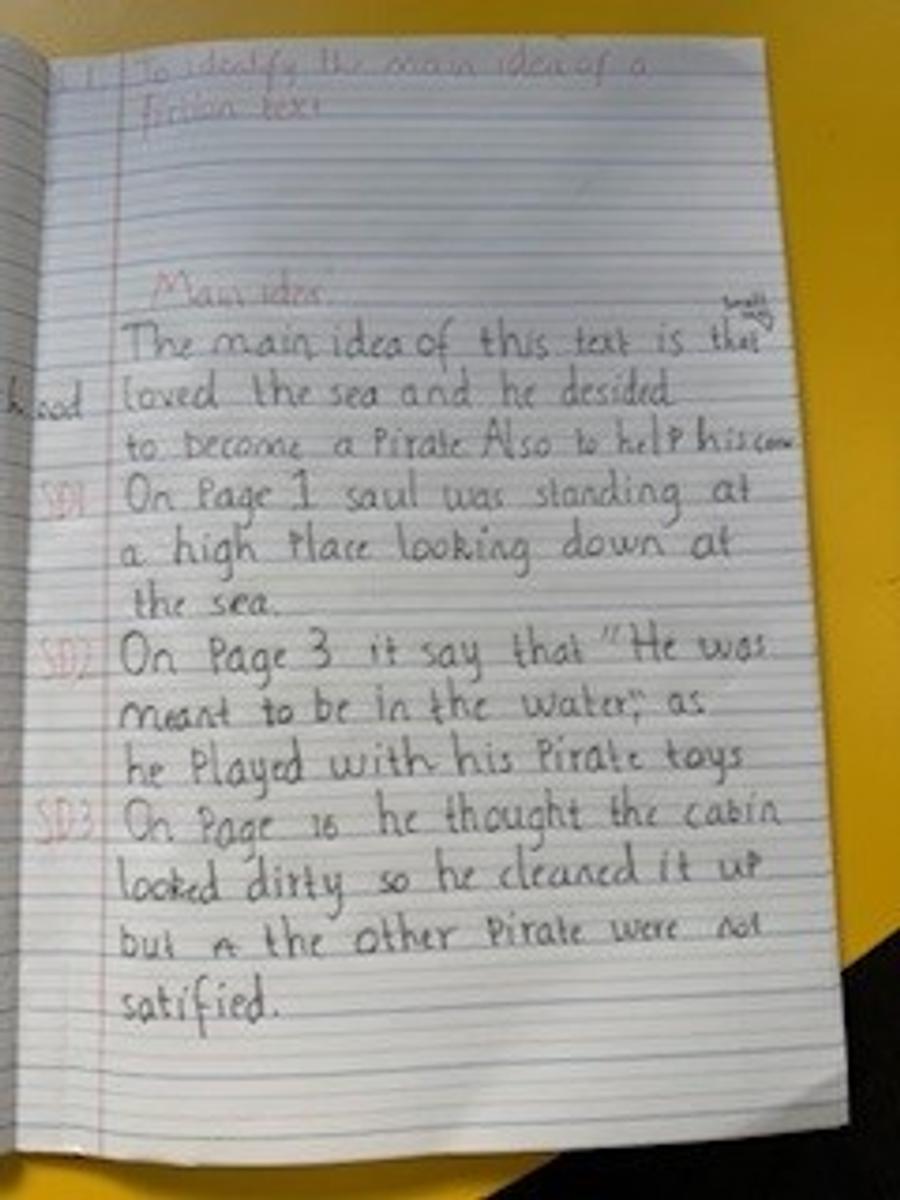 To idealify the main idea of a
fiction text
Main idea
The main idea of this text is that
loved the sea and he desided
to become a Pirate Also to help his
SD1 On Page 1 saul was standing at
a high Place looking down at
the sea.
SD2 On Page 3 it say that "He was
meant to be in the water", as
he Played with his Pirate toys
SD3 On Page 16 he thought the cabin
looked dirty so he cleaned it up
but the other Pirate were not
satified.